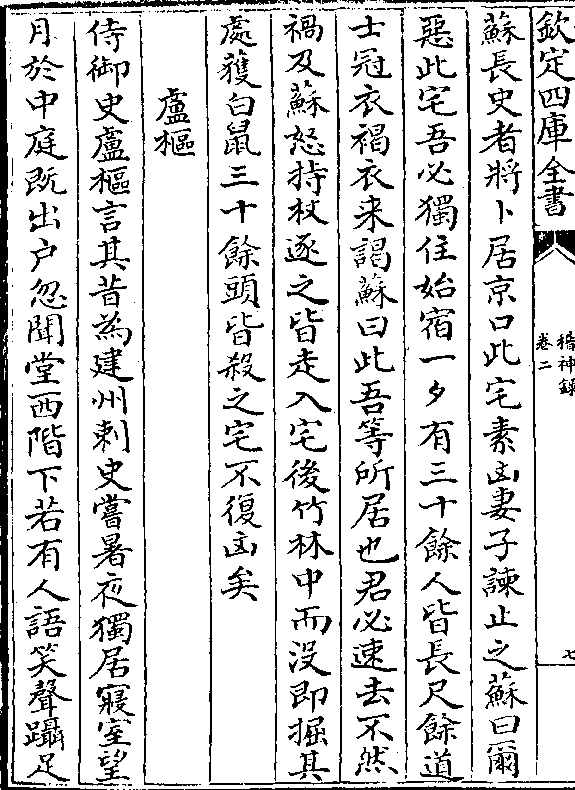 欽定四庫全書
稽神錄
卷二
七
蘇長史者將卜居京口此宅素凶妻子諫止之蘇曰爾
惡此宅吾必獨住始宿一夕有三十餘人皆長尺餘道
士冠衣褐衣来謁蘇曰此吾等所居也君必速去不然
禍及蘇怒持杖逐之皆走入宅後竹林中而没即掘其
處獲白鼠三十餘頭皆殺之宅不復凶矣
盧樞
侍御史盧樞言其昔為建州刺史嘗暑夜獨居寢室望
月於中庭既出户忽聞堂西階下若有人語笑聲躡足